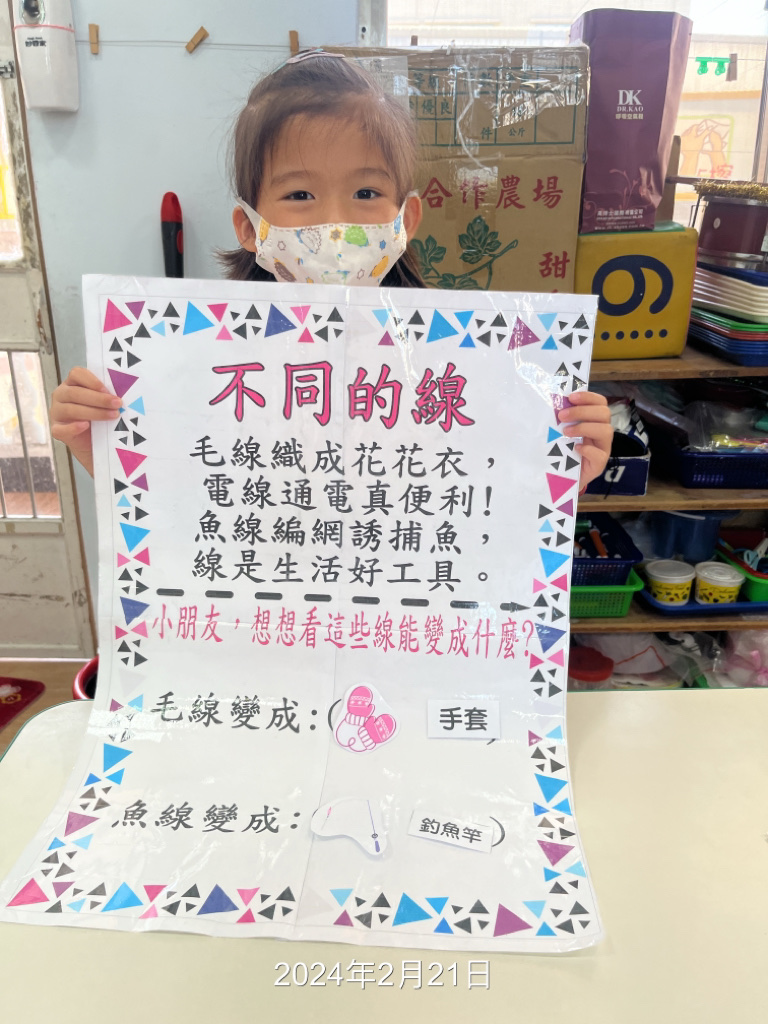 優良
件
公斤
合作農場
甜
DK
DR.KAO
6
不同的線
毛線織成花花衣，
電線通電真便利！
魚線編網誘捕魚，
線是生活好工具。
小朋友，想想看這些線能變成什麼?
毛線變成:( 手套
魚線變成: 釣魚竿)
2024年2月21日